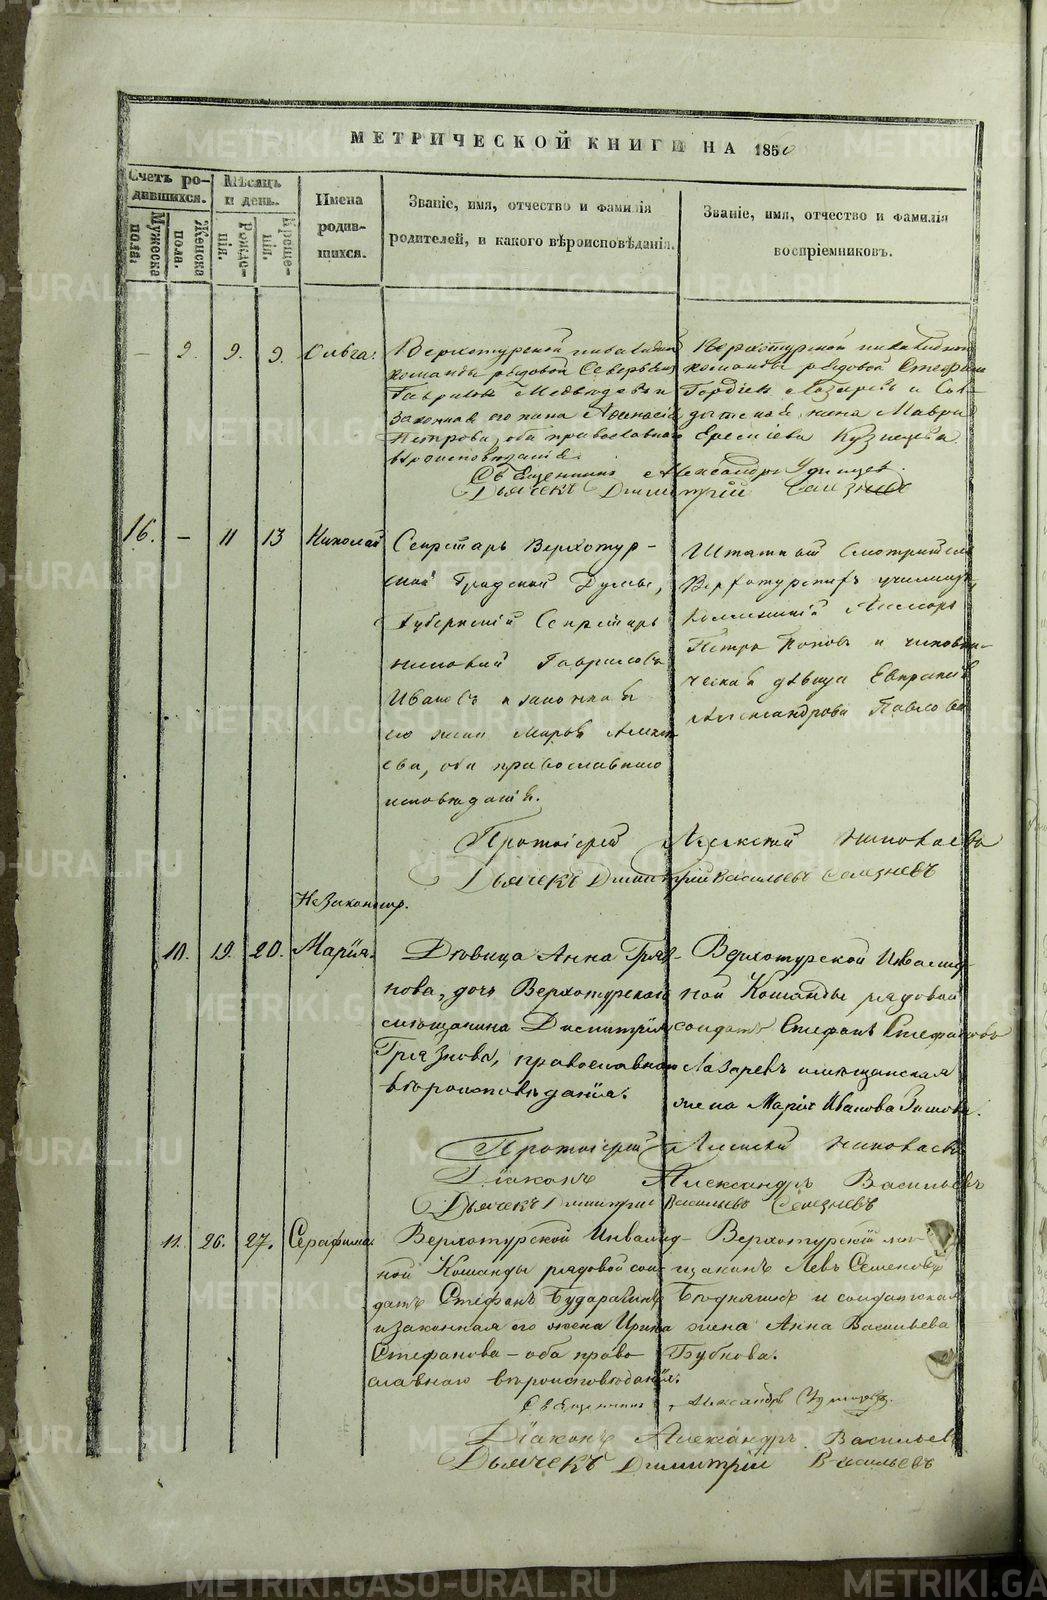 МЕТРИЧЕСКОЙ КНИГИ НА 1850
Счетъ ро-
дившихся.
Мѣсяцъ
и день.
Мужеска
пола.
Женска
пола.
Рожде-
нія.
Креще-
нія.
Имена
родив-
шихся.
Званіе, имя, отчество и фамилія
родителей, и какого вѣроисповѣданія.
Званіе, имя, отчество и фамилія
воспріемниковъ.
— 9. 9. 9. Ольга.
Верхотурской инвалидной
команды рядовой
законная его жена
Петрова, оба православнаго
вѣроисповѣданія.
Верхотурской инвалидной
команды рядовой Стефанъ
Лазаревъ и Сол-
датская жена Мавра
Кузнецова
Священникъ Александръ Удинцев.
Дьячекъ Димитрій Селезневъ
16. — 11 13 Николай
Секретарь Верхотур-
ской Градской Думы,
Губернскій Секретарь
Николай Гавриловъ
Ивановъ и законная
его жена Марья Алексѣ
ева, оба православнаго
исповѣданія.
Штатный Смотритель
Верхотурскихъ училищъ,
Коллежскій Ассесоръ
Петръ Поповъ и чиновни-
ческая дѣвица Евпраксія
Александрова Павлова
Протоіерей Алексій Николаевъ
Дьячекъ Димитрій Васильевъ Селезневъ
Незаконнор.
10. 19. 20. Марія.
Дѣвица Анна Гряз-
нова, дочь Верхотурскаго
мѣщанина Димитрія
Грязнова, православнаго
вѣроисповѣданія.
Верхотурской Инвалид-
ной Команды рядовой
солдатъ Стефанъ Стефановъ
Лазаревъ и мѣщанская
жена Марія Иванова Зимова.
Протоіерей Алексій Николаевъ
Діаконъ Александръ Васильевъ
Дьячекъ Димитрій Васильевъ Селезневъ
11. 26. 27. Серафима.
Верхотурской Инвалид-
ной Команды рядовой сол-
датъ Стефанъ Бударагинъ
и законная его жена Ирина
Стефанова — оба право-
славнаго вѣроисповѣданія.
Верхотурскій мѣ-
Левъ Семеновъ
и солдатская
жена Анна Васильева
Бубнова.
Священникъ Александръ Удинцев.
Діаконъ Александръ Васильевъ
Дьячекъ Димитрій Васильевъ
METRIKI.GASO-URAL.RU